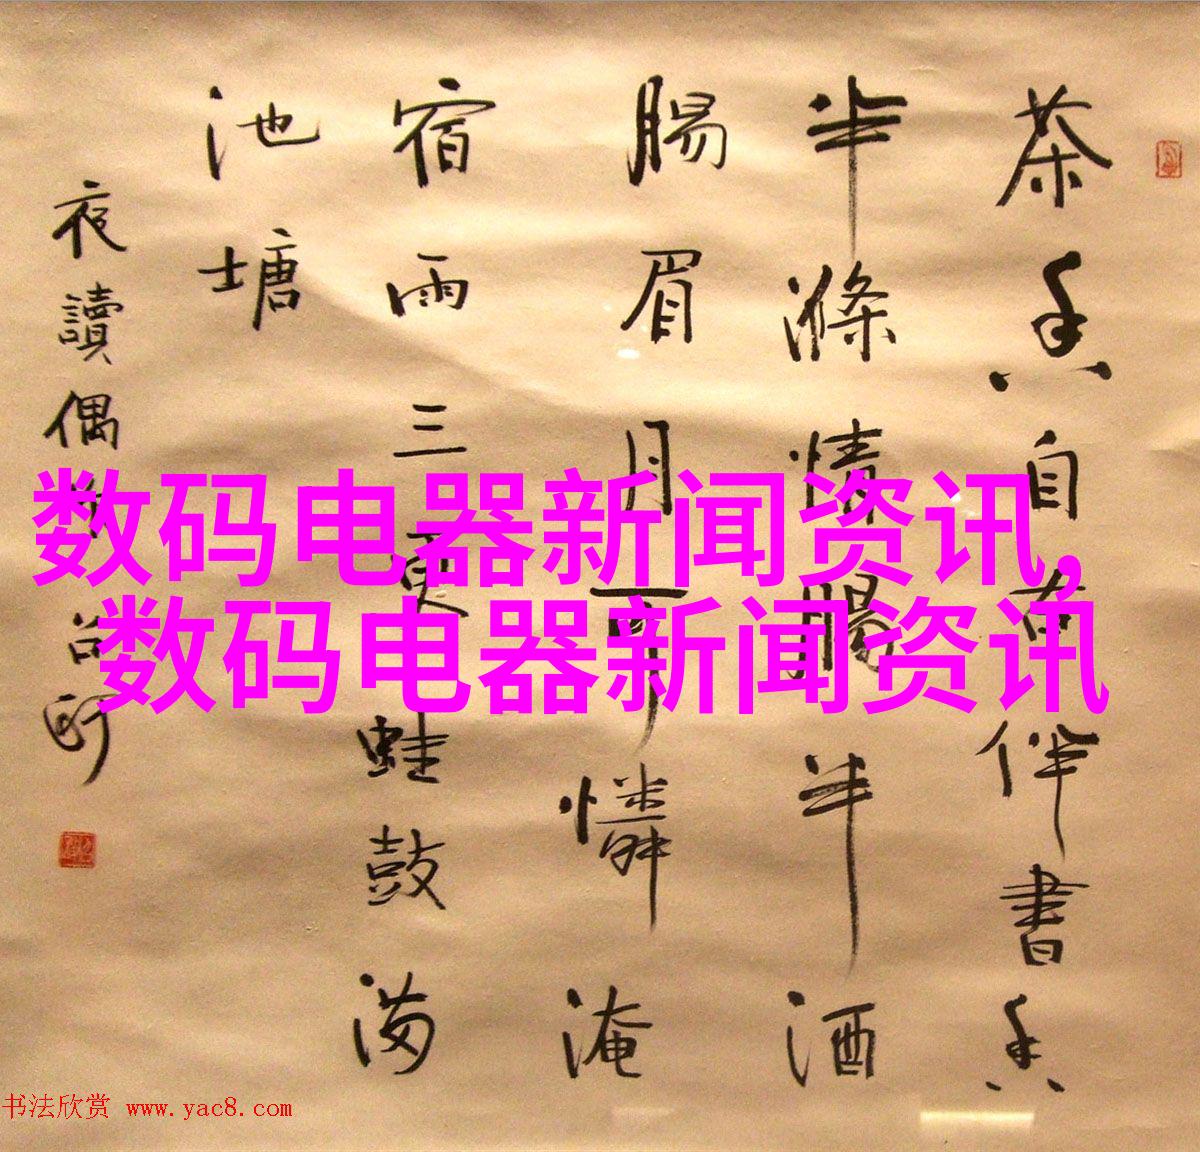 茶香自伴書香
半滌情腸半酒
腸眉月可憐淹
宿雨三更蛙鼓满
池塘
夜讀偶
数码电器新闻资讯,
数码电器新闻资讯
书法欣赏 www.yac8.com